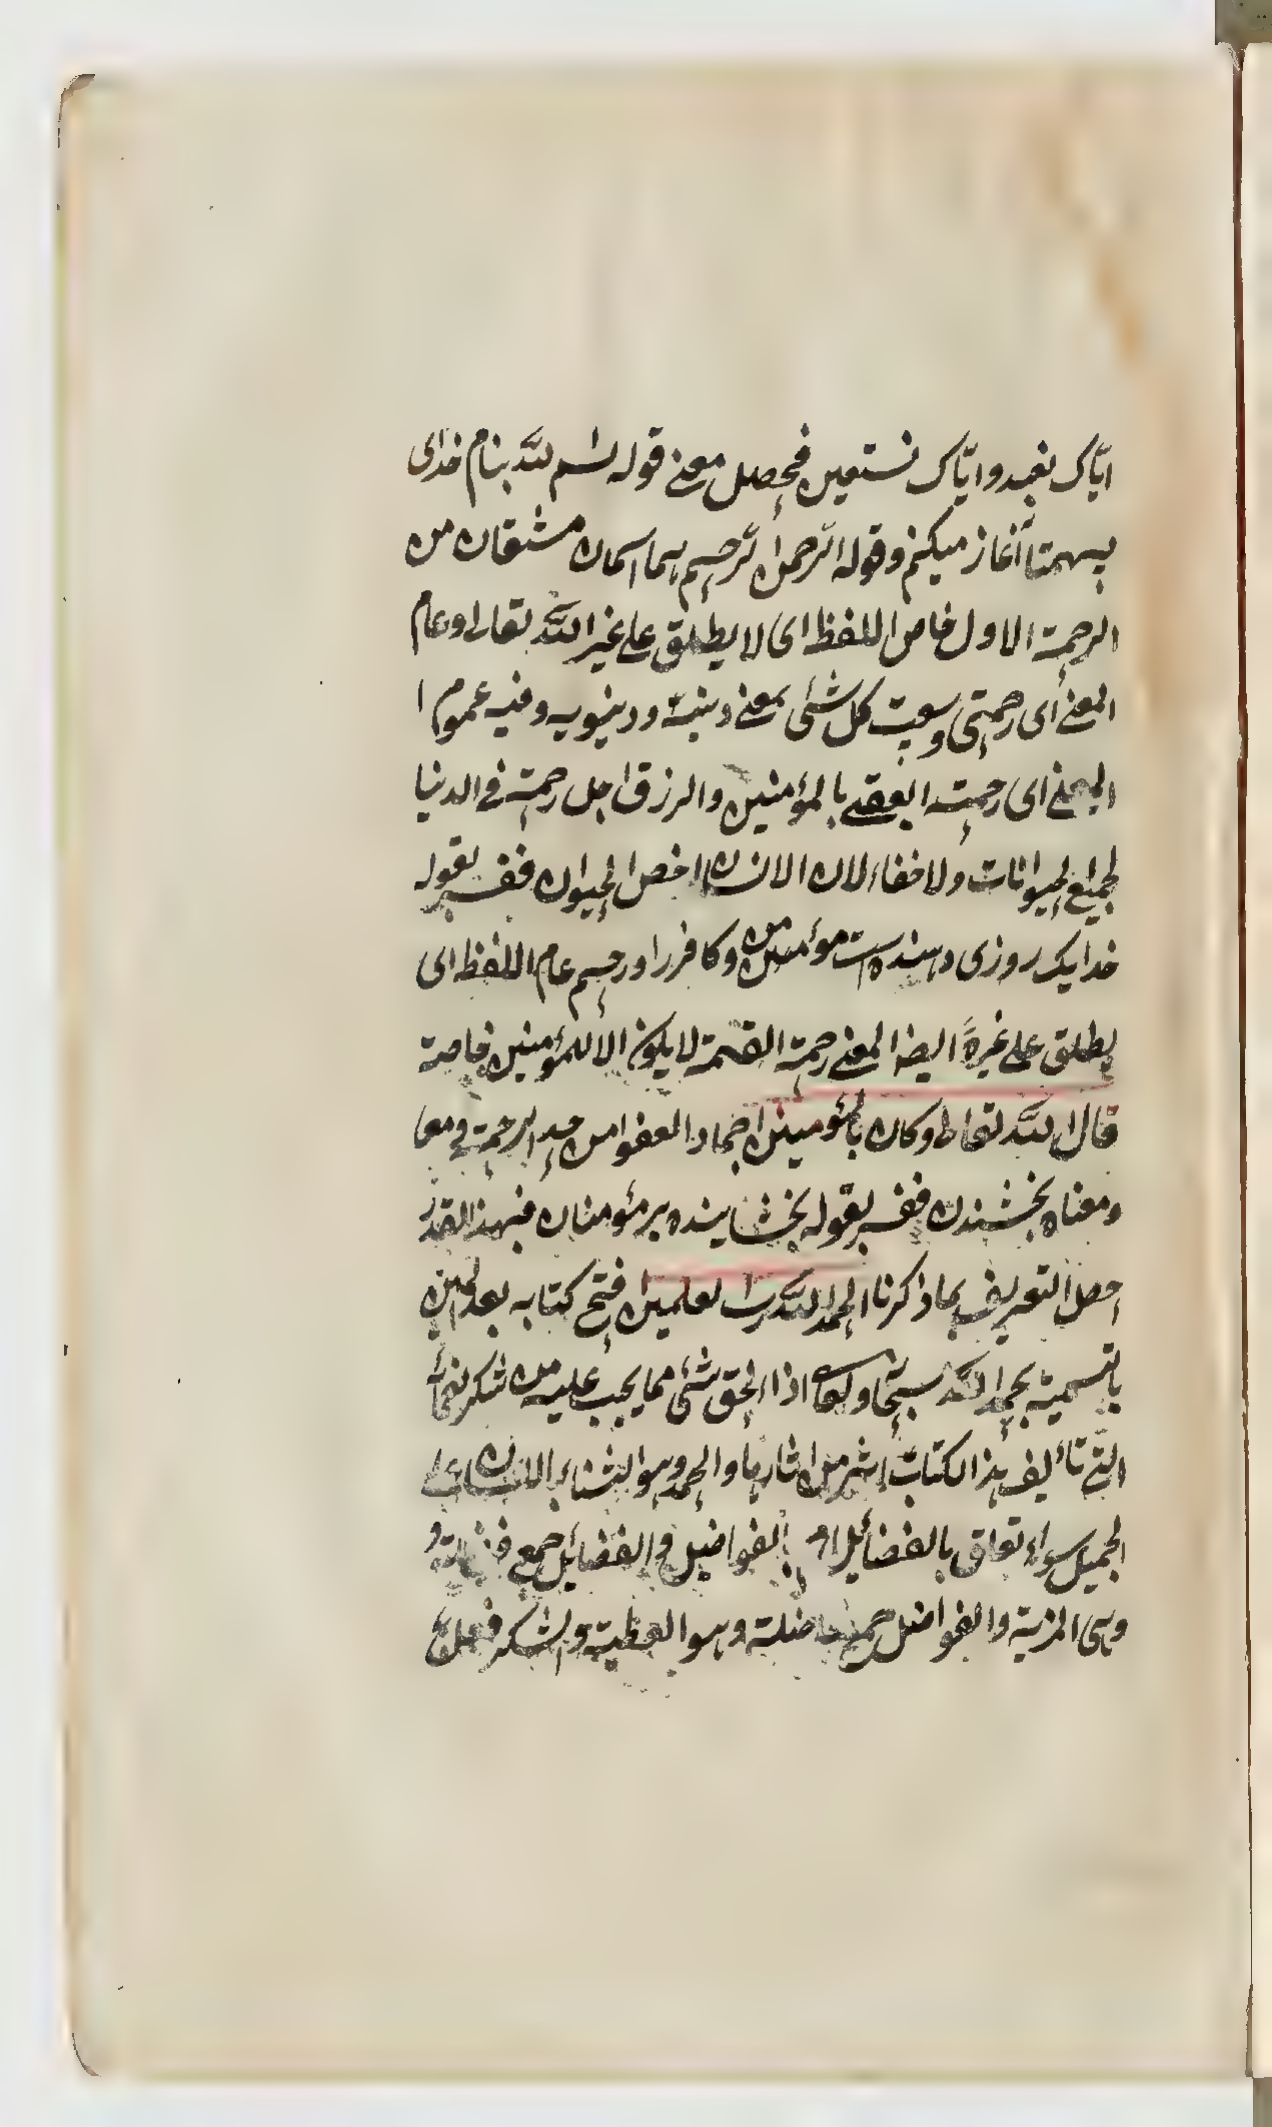 ایّاک نعبد وایّاک نستعین فحصل معنی قوله بسم الله بنام خدای
بیهمتا آغاز میکنم وقوله الرّحمن الرّحیم هما اسمان مشتقان من
الرحمة الاول خاص اللفظ ای لا یطلق علی غیر الله تعالی وعام
المعنی ای رحمتی وسعت کل شئی بمعنی دینیة ودینویه وفیه عموم ا
المعنی ای رحمته العقبی بالمؤمنین والرزق اجل رحمة فی الدنیا
لجمیع الحیوانات ولا خفاء لان الانسان اخص الحیوان ففسر بقوله
خدایک روزی دهنده است مؤمن وکافر را ورحیم عام اللفظ ای
یطلق علی غیره ایضا المعنی رحمة القسمة لا یکون الا للمؤمنین خاصة
قال الله تعالی وکان بالمؤمنین رحیما والعفو من الرحمة فی معا
ومعناه بخشندن ففسر بقوله بخشاینده بر مؤمنان فبهذا القدر
حصل التعریف بما ذکرنا الحمد لله رب العلمین افتح کتابه بعد التیمن
بالتسمیة بحمد الله سبحانه وتعالی اداء لحق شئی مما یجب علیه من شکر نعمائه
التی تألیف هذا الکتاب اثر من اثارها والحمد هو الثناء باللسان علی
الجمیل سواء تعلق بالفضائل او بالفواضل والفضائل جمع فضیلة و
وهی المزیة والفواضل جمع فاضلة وهو العطیة والشکر فعل